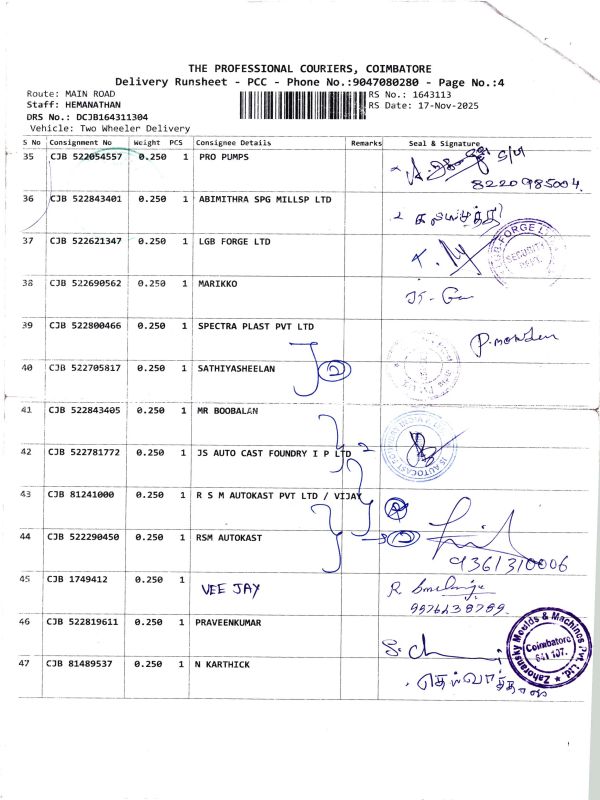 THE PROFESSIONAL COURIERS, COIMBATORE
Delivery Runsheet - PCC - Phone No.:9047080280 - Page No.:4
Route: MAIN ROAD
RS No.: 1643113
Staff: HEMANATHAN
RS Date: 17-Nov-2025
DRS No.: DCJB164311304
Vehicle: Two Wheeler Delivery
S No Consignment No Weight PCS Consignee Details Remarks Seal & Signature
35 CJB 522054557 0.250 1 PRO PUMPS
8220985004.
36 CJB 522843401 0.250 1 ABIMITHRA SPG MILLSP LTD
37 CJB 522621347 0.250 1 LGB FORGE LTD
LGB FORGE
SECURITY DEPT.
38 CJB 522690562 0.250 1 MARIKKO
39 CJB 522800466 0.250 1 SPECTRA PLAST PVT LTD
40 CJB 522705817 0.250 1 SATHIYASHEELAN
2
41 CJB 522843405 0.250 1 MR BOOBALAN
42 CJB 522781772 0.250 1 JS AUTO CAST FOUNDRY I P LTD
2
43 CJB 81241000 0.250 1 R S M AUTOKAST PVT LTD / VIJAY
44 CJB 522290450 0.250 1 RSM AUTOKAST
2
9361310006
45 CJB 1749412 0.250 1 VEE JAY
46 CJB 522819611 0.250 1 PRAVEENKUMAR
Zahoransky Moulds & Machines Pvt. Ltd.
Coimbatore
641 107.
47 CJB 81489537 0.250 1 N KARTHICK